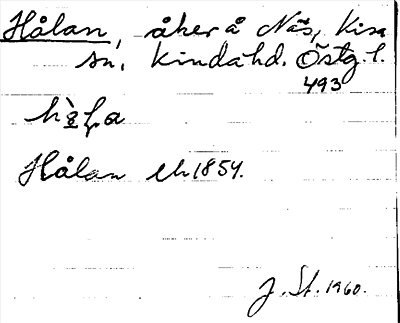 Hålan, åker å Näs, Kisa
sn, Kinda hd. Östg. l.
493
Hålan LK 1854.
J. St. 1960.